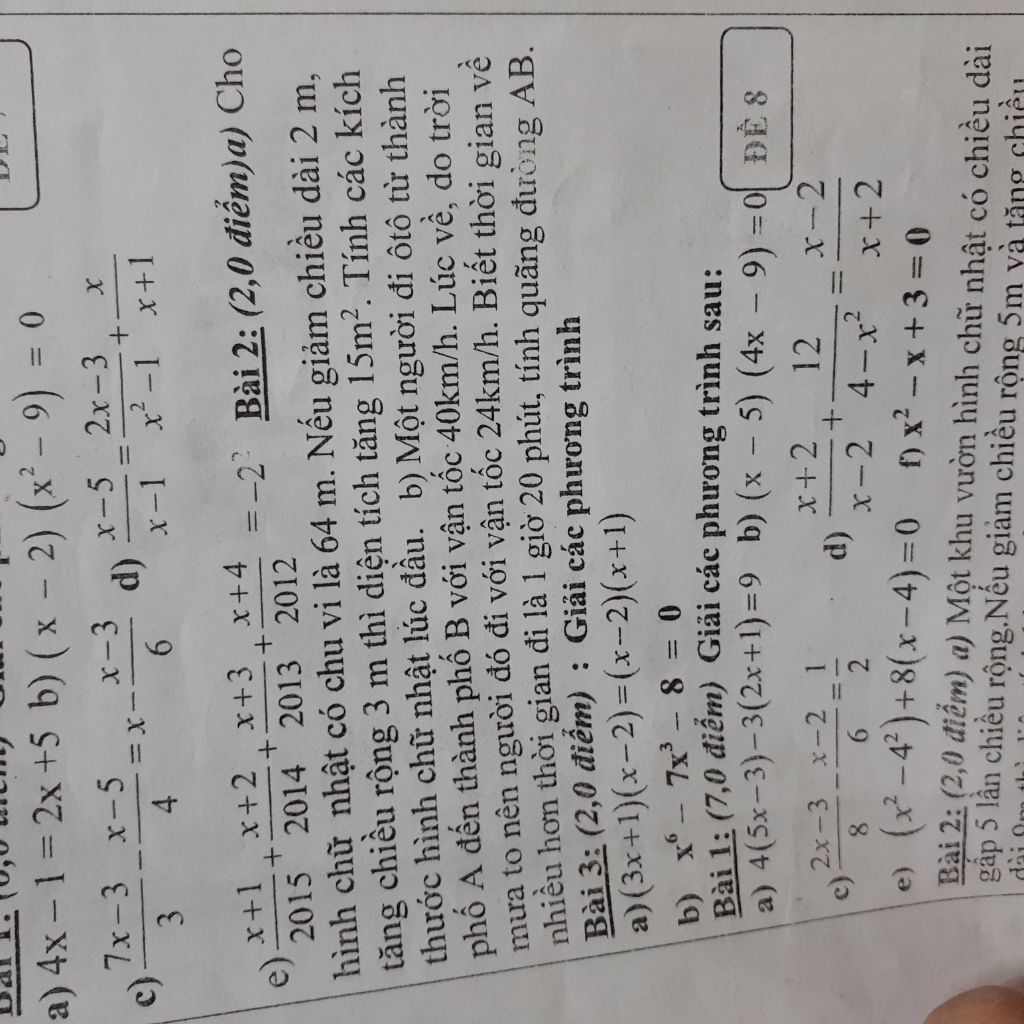 Bài 1:
a) 4x − 1 = 2x + 5 b) ( x − 2) (x² − 9) = 0
c) (7x−3)/3 − (x−5)/4 = x − (x−3)/6 d) (x−5)/(x−1) = (2x−3)/(x²−1) + x/(x+1)
e) (x+1)/2015 + (x+2)/2014 + (x+3)/2013 + (x+4)/2012 = −2? Bài 2: (2,0 điểm)a) Cho
hình chữ nhật có chu vi là 64 m. Nếu giảm chiều dài 2 m,
tăng chiều rộng 3 m thì diện tích tăng 15m². Tính các kích
thước hình chữ nhật lúc đầu. b) Một người đi ôtô từ thành
phố A đến thành phố B với vận tốc 40km/h. Lúc về, do trời
mưa to nên người đó đi với vận tốc 24km/h. Biết thời gian về
nhiều hơn thời gian đi là 1 giờ 20 phút, tính quãng đường AB.
Bài 3: (2,0 điểm) : Giải các phương trình
a)(3x+1)(x−2)=(x−2)(x+1)
b) x⁶ − 7x³ − 8 = 0
ĐỀ 8
Bài 1: (7,0 điểm) Giải các phương trình sau:
a) 4(5x−3)−3(2x+1)=9 b) (x − 5) (4x − 9) = 0
c) (2x−3)/8 − (x−2)/6 = 1/2 d) (x+2)/(x−2) + 12/(4−x²) = (x−2)/(x+2)
e) (x²−4²)+8(x−4)=0 f) x² − x + 3 = 0
Bài 2: (2,0 điểm) a) Một khu vườn hình chữ nhật có chiều dài
gấp 5 lần chiều rộng.Nếu giảm chiều rộng 5m và tăng chiều
dài 9m thì